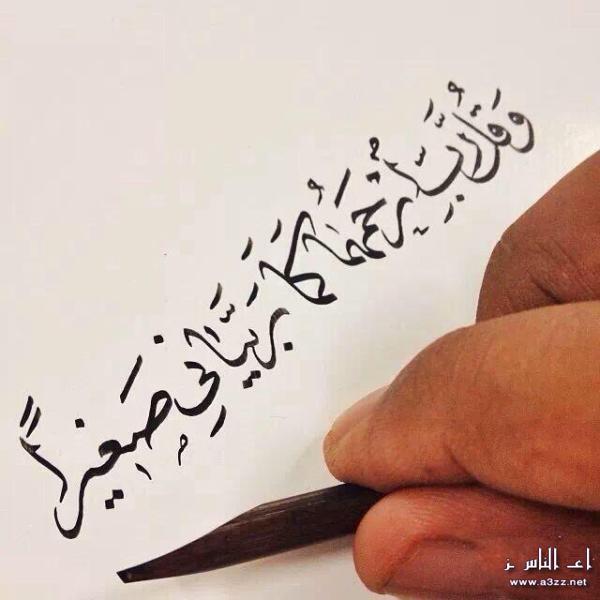 وَقُل رَّبِّ ارْحَمْهُمَا كَمَا رَبَّيَانِي صَغِيرًا
اعـ الناس ـز
www.a3zz.net